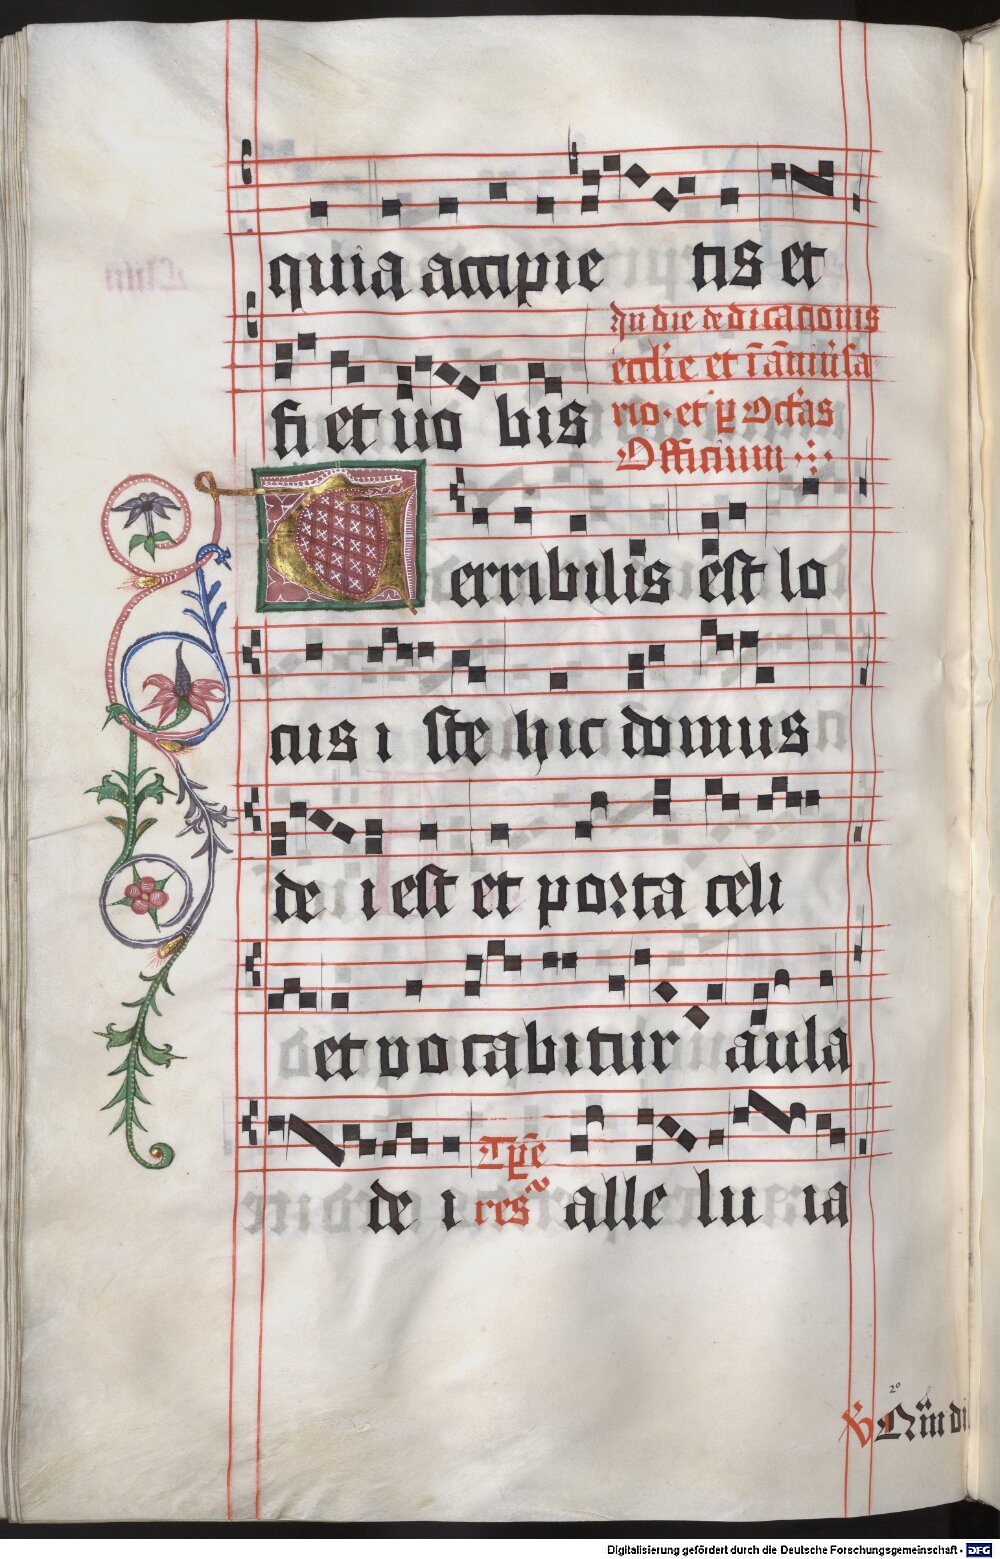 quia accipie tis et
In die dedicacionis
eccl̄ie et ī āniu̇sa
fi et uo bis
rio · et ꝑ Octȧs
Officium
Terribilis est lo
cus i ste hic domus
de i est et porta celi
et vocabitur aula
Tꝑe
de i res alle lu ia
2º
℣
Digitalisierung gefördert durch die Deutsche Forschungsgemeinschaft - DFG